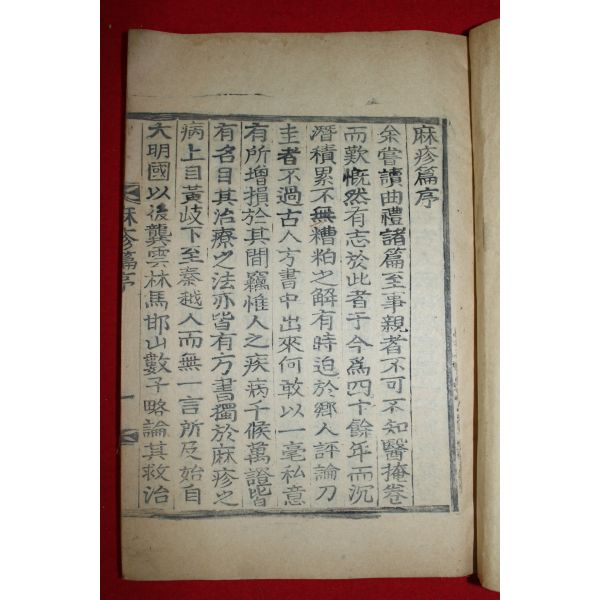 麻疹篇序
余嘗讀曲禮諸篇至事親者不可不知醫掩卷
而歎慨然有志於此者于今爲四十餘年而沉
潛積累不無糟粕之解有時迫於鄉人評論刀
圭者不過古人方書中出來何敢以一毫私意
有所增損於其間竊惟人之疾病千候萬證皆
有名目其治療之法亦皆有方書獨於麻疹之
病上自黃歧下至秦越人而無一言所及始自
大明國以後龔雲林馬邯山數子略論其救治
麻疹篇序
一